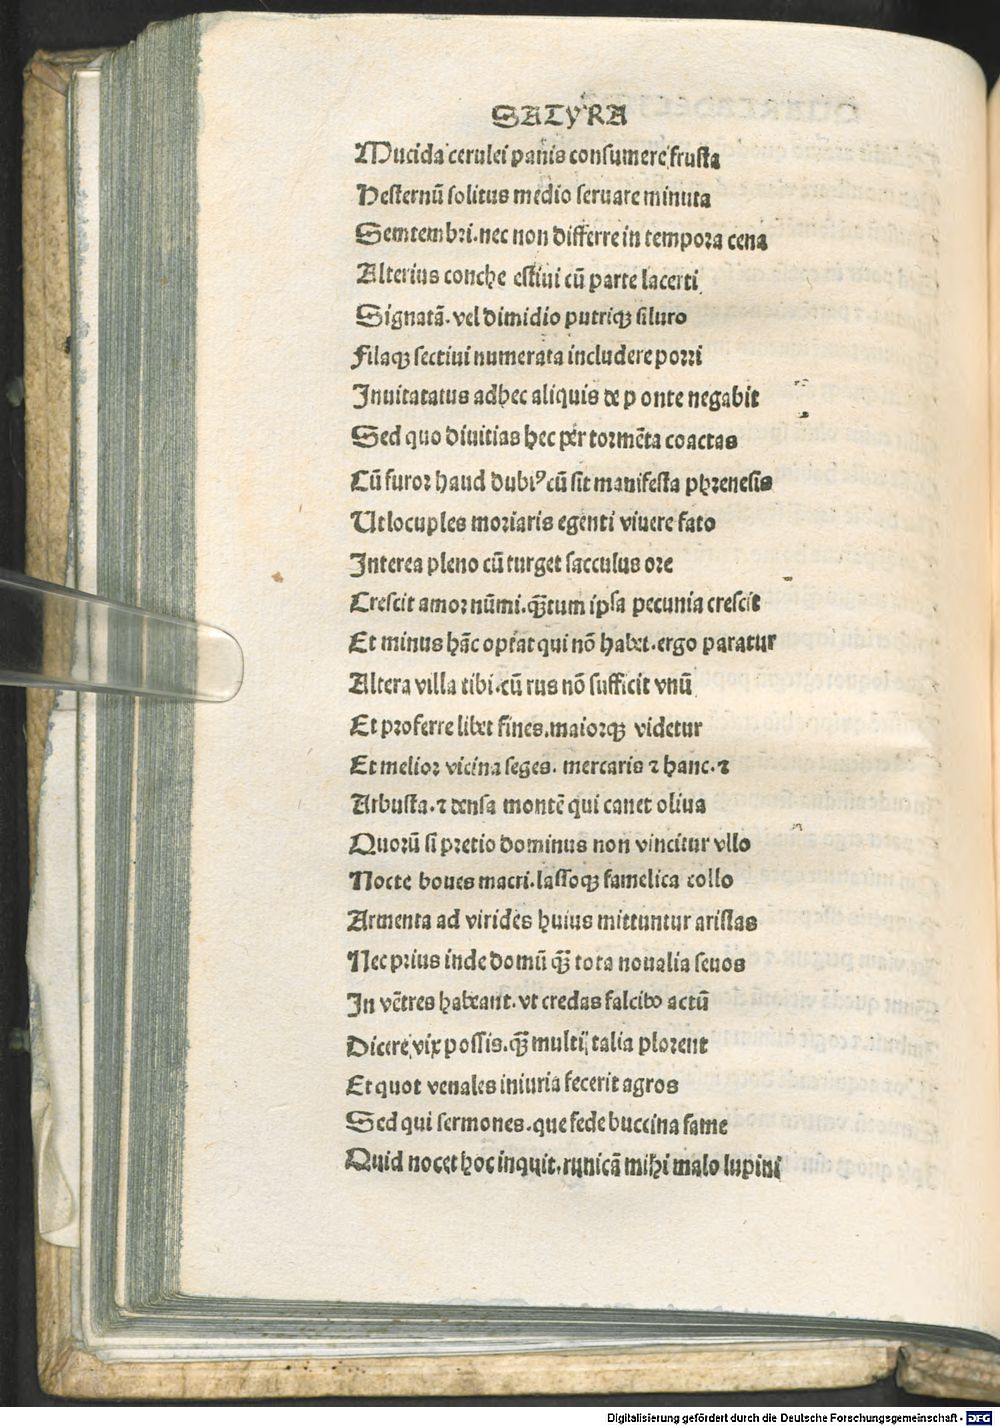 SATYRA
Mucida cerulei panis consumere frusta
Hesternū solitus medio seruare minuta
Semtembri. nec non differre in tempora cena
Alterius conche estiui cū parte lacerti
Signatā. vel dimidio putriqꝫ siluro
Filaqꝫ sectiui numerata includere porri
Inuitatatus adhec aliquis de p onte negabit
Sed quo diuitias hec per tormēta coactas
Cū furor haud dubiꝰ cū sit manifesta phrenesis
Ut locuples moriaris egenti viuere fato
Interea pleno cū turget sacculus ore
Crescit amor nūmi. qꝫ̄tum ipsa pecunia crescit
Et minus hāc optat qui nō habet. ergo paratur
Altera villa tibi. cū rus nō sufficit vnū
Et proferre libet fines. maiorqꝫ videtur
Et melior vicina seges. mercaris ⁊ hanc. ⁊
Arbusta. ⁊ densa montē qui canet oliua
Quorū si pretio dominus non vincitur vllo
Nocte boues macri. lassoqꝫ famelica collo
Armenta ad virides huius mittuntur aristas
Nec prius inde domū qꝫ̄ tota noualia seuos
In vētres habeant. vt credas falcibo actū
Dicere vix possis. qꝫ̄ multi talia plorent
Et quot venales iniuria fecerit agros
Sed qui sermones. que fede buccina fame
Quid nocet hoc inquit. tunicā mihi malo lupini
Digitalisierung gefördert durch die Deutsche Forschungsgemeinschaft - DFG